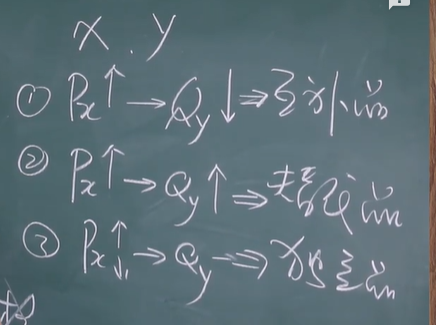 X. Y
① Px↑→Qy↓⇒互补品
② Px↑→Qy↑⇒替代品
③ Px↑↓→Qy⇒独立品